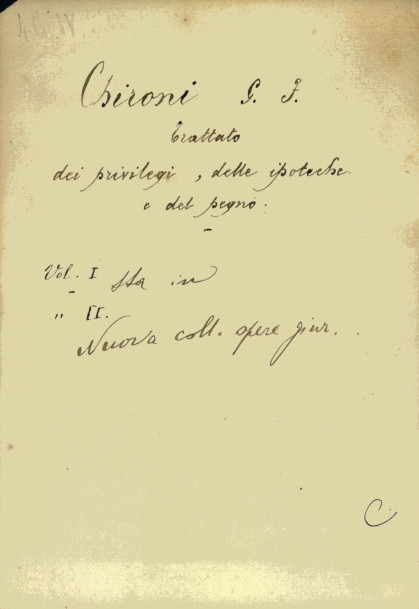 Chironi G. F.
Trattato
dei privilegi, delle ipoteche
e del pegno.
Vol. I sta in
" II.
Nuova coll. opere giur.
C